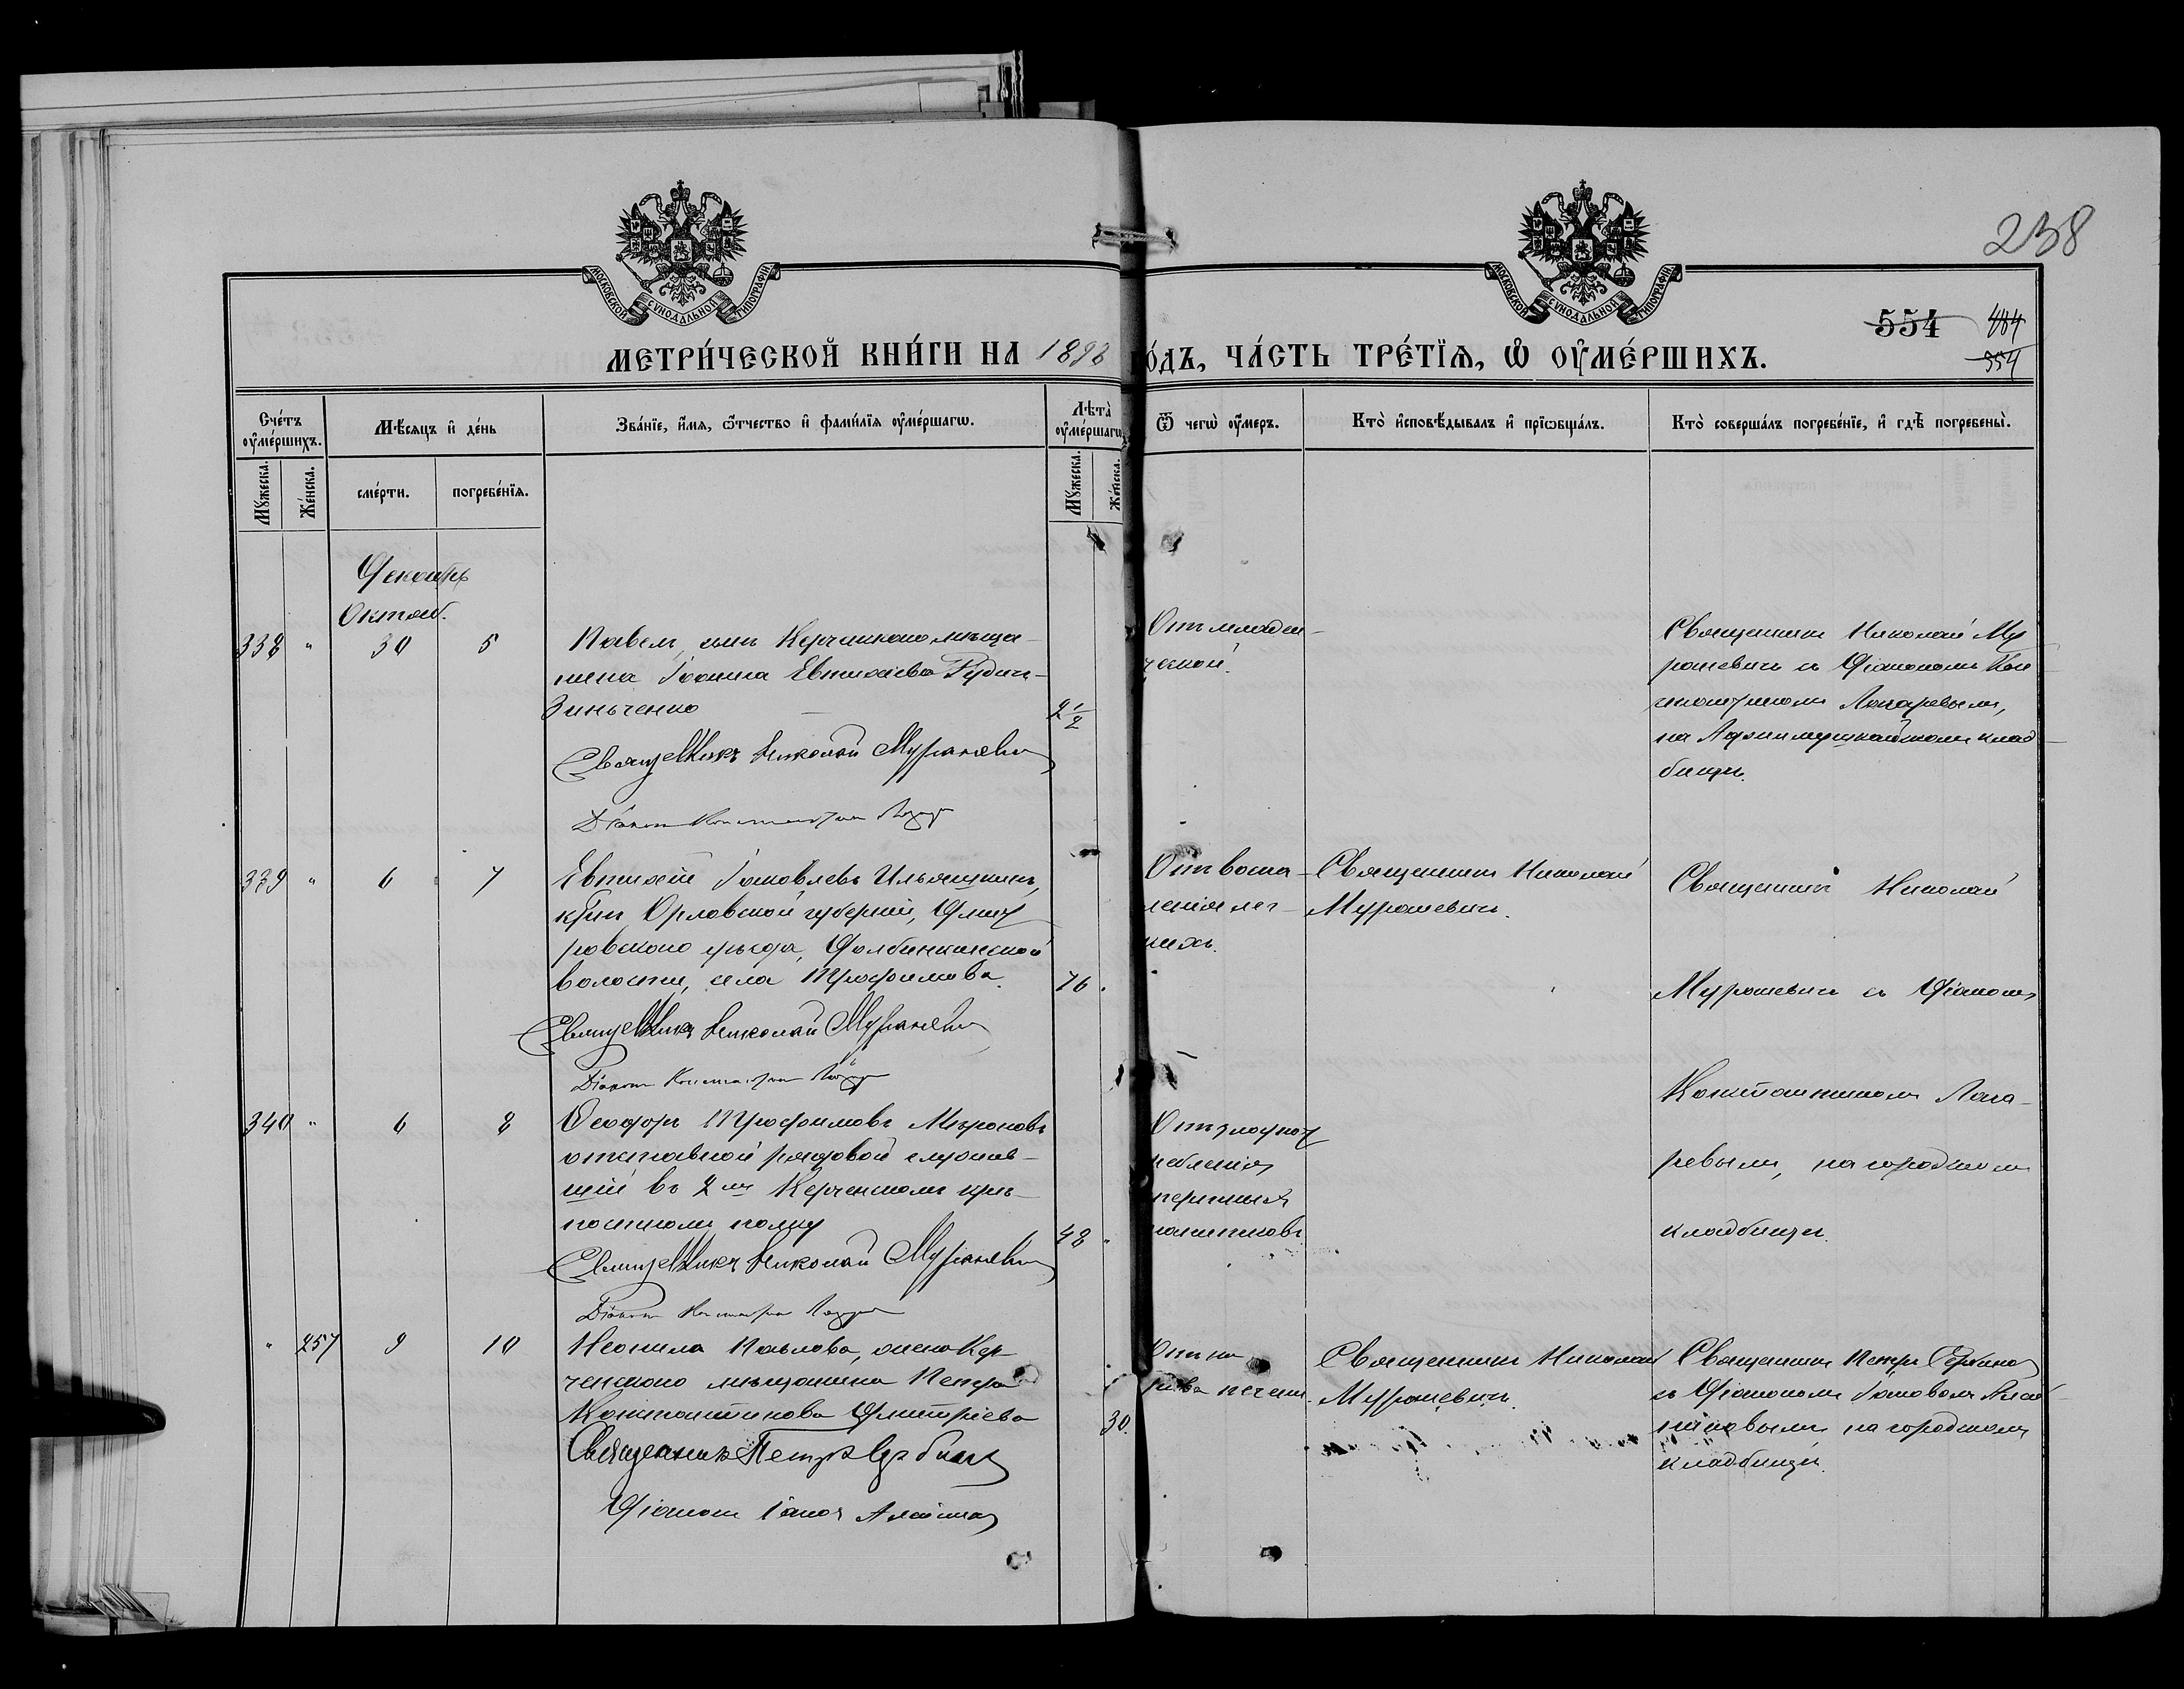 МОСКОВСКОЙ СУНОДАЛЬНОЙ ТИПОГРАФІИ
МОСКОВСКОЙ СУНОДАЛЬНОЙ ТИПОГРАФІИ
238
554 484
554
МЕТРИ́ЧЕСКОЙ КНИ́ГИ НА 1893
О́ДЪ, ЧА́СТЬ ТРЕ́ТЇѦ, Ѡ ОУ҆МЕ́РШИХЪ.
Сче́тъ оу҆ме́ршихъ.
Мꙋ́жеска.
Же́нска.
Мѣ́сяцъ и҆ де́нь
сме́рти.
погребе́нїѧ.
Зва́нїе, и҆́мѧ, ѻ҆́тчество и҆ фами́лїѧ оу҆ме́ршагѡ.
Лѣта̀ оу҆ме́ршагѡ
Мꙋ́жеска.
Же́нска.
Ѿ чегѡ̀ оу҆́меръ.
Кто̀ и҆сповѣ́дывалъ и҆ прїѡбща́лъ.
Кто̀ соверша́лъ погребе́нїе, и҆ гдѣ̀ погребены̀.
Октяб.
338 " 30 5
Павелъ, сынъ Керченскаго мѣща-
нина Іоанна Евтихіева Рудич-
Зинченко
2 1/2
Священникъ Николай Мурашевич
Діаконъ Константин
Отъ младен-
ческой.
Священникъ Николай Му
рашевичъ съ Діакономъ Кон
стантиномъ Лагаревымъ,
на Аджимушкайскомъ клад-
бищѣ.
339 " 6 7
Евтихій Іаковлевъ Ильюшкинъ,
кр'нъ Орловской губерніи, Дмит
ровскаго уѣзда,
волости, села Трофимова.
76.
Священникъ Николай Мурашевич
Діаконъ Константин
Отъ воспа-
ленія лег-
кихъ.
Священникъ Николай
Мурашевичъ.
Священникъ Николай
Мурашевичъ съ Діакономъ
Константиномъ Лага-
ревымъ, на городскомъ
кладбищѣ.
340 " 6 8
Ѳеодоръ Трофимовъ Мироновъ
отставной рядовой служив-
шій въ 2мъ Керченскомъ крѣ-
постномъ полку
48 "
Священникъ Николай Мурашевич
Діаконъ Константин
Отъ злоупот
ребленія
спиртныхъ
напитковъ
" 257 9 10
Неонила Павлова, жена Кер-
ченскаго мѣщанина Петра
Константинова Дмитріева
30.
Священникъ Петръ Сербинов
Діаконъ Іаковъ
Отъ на
рыва печени.
Священникъ Николай
Мурашевичъ.
Священникъ Петръ Сербинов
съ Діакономъ Іаковомъ
на городскомъ
кладбищѣ.